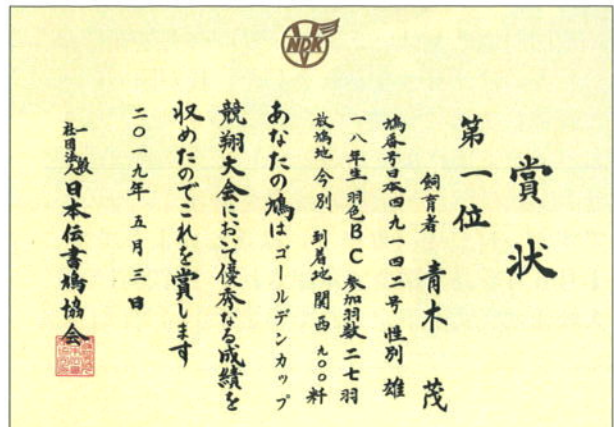 NDK
賞状
第一位
飼育者 青木 茂
鳩番号日本四九一四二号 性別 雄
一八年生 羽色BC 参加羽数 二七羽
放鳩地 今別 到着地 関西 九〇〇粁
あなたの鳩はゴールデンカップ
競翔大会において優秀なる成績を
収めたのでこれを賞します
二〇一九年 五月 三日
一般社団法人日本伝書鳩協会